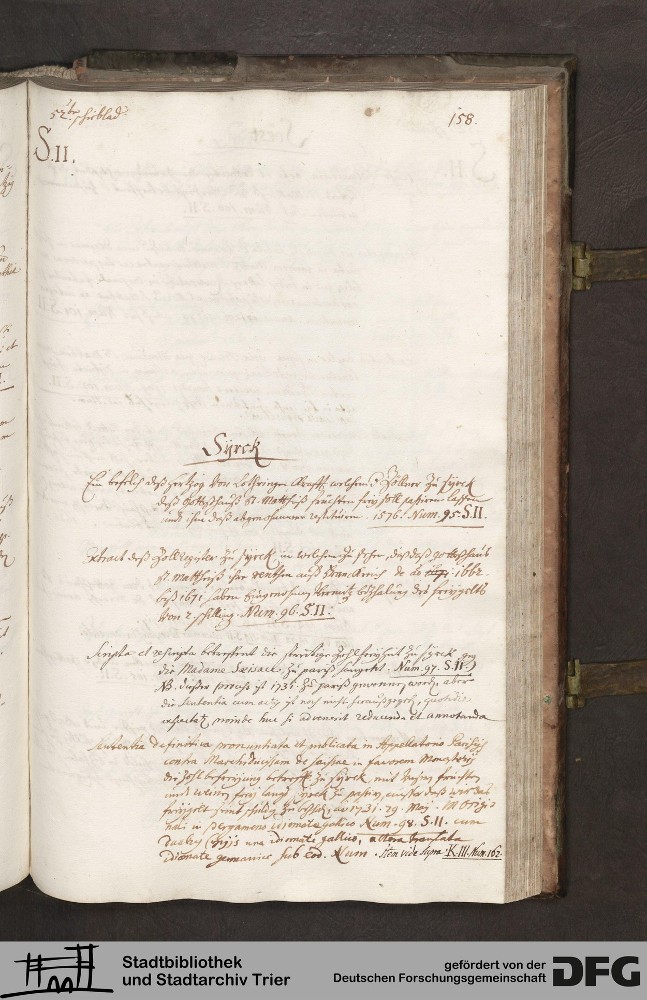 52te schieblad
158.
S.II.
Syrck
Ein befelch deß Hertzog von Lothringen Krafft welchem Zölner zu Syrck
deß Gottshauß St. Mattheiß früchten frey soll passiren lassen
undt ihm deß abgenohmmene restituiren. 1576. Num. 95. S.II.
Extract deß Zollregister zu Syrck in welchem zu sehen, daß daß gotteshauß
St. Mattheiß ihre renthen auß Franckreich de ao 1662
biß 1671 haben eingenohmen vermitz bezahlung deß freygelts
von 2 schilling. Num. 96. S.II.
Scripta et rescripta betreffent die streitige Zohlfreyheit zu Syrck geg
die Madame zu pariß Num. 97. S.II.
NB. dießer proceß ist 1731 zu pariß gewonnen worden aber
die sententia cum actis ist noch nicht herausgegeben, quotidie
expectatur, moinde huc si advenerit reducenda et annotanda
Sententia definitiva pronuntiata et publicata in Appellatorio Parisijs
contra in favorem Monasterij
die Zohl befreyung betreffent zu Syrck, mit früchten
undt weinen frey langs Syrck zu passiren, außer daß wir das
freygelt seint schuldig zu bezahlen, ao 1731. 29. Maij. in Origi
nali in pergameno idiomate gallico Num. 98. S.II. cum
duabus Copijs una idiomate gallico, altera translata
Idiomate germanico sub eod. Num. Item vide supra K.III. Num. 162.
Stadtbibliothek
und Stadtarchiv Trier
gefördert von der
Deutschen Forschungsgemeinschaft
DFG